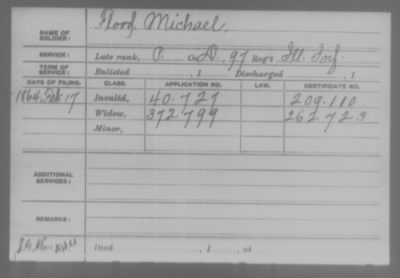 NAME OF SOLDIER: Flood, Michael,
SERVICE: Late rank, P. Co. D, 97 Reg't Ill. Inf.
TERM OF SERVICE: Enlisted , 1 Discharged , 1
DATE OF FILING. CLASS. APPLICATION NO. LAW. CERTIFICATE NO.
1864, 17 Invalid, 40.727 209.110
Widow, 372.799 262.723
Minor,
ADDITIONAL SERVICES:
REMARKS:
Died , 1 , at